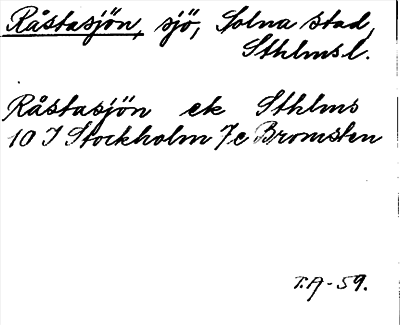 Råstasjön, sjö, Solna stad,
Sthlms l.
Råstasjön ek Sthlms
10 I Stockholm 7c Bromsten
T.A-59.